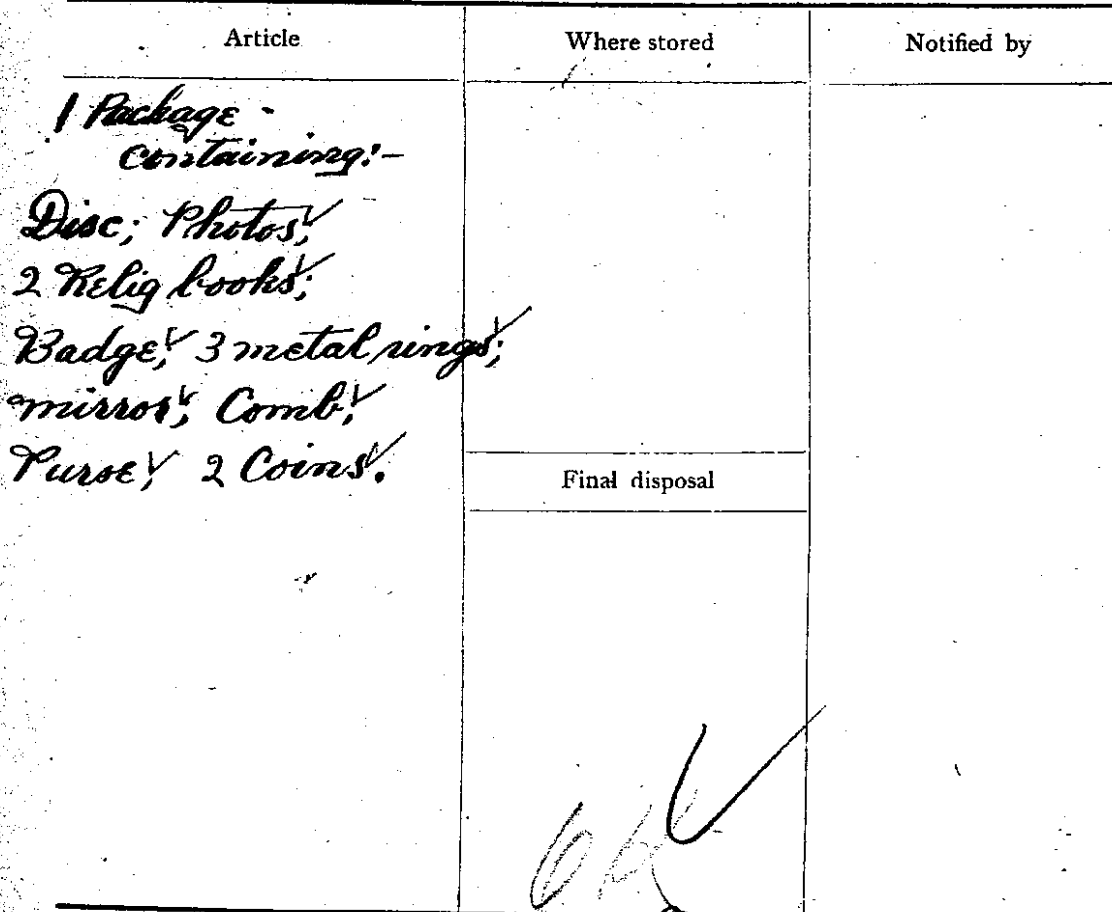 Article Where stored Notified by
1 Package -
containing:-
Disc; Photos;
2 Relig books;
Badge; 3 metal rings;
mirror; Comb;
Purse; 2 Coins.
Final disposal